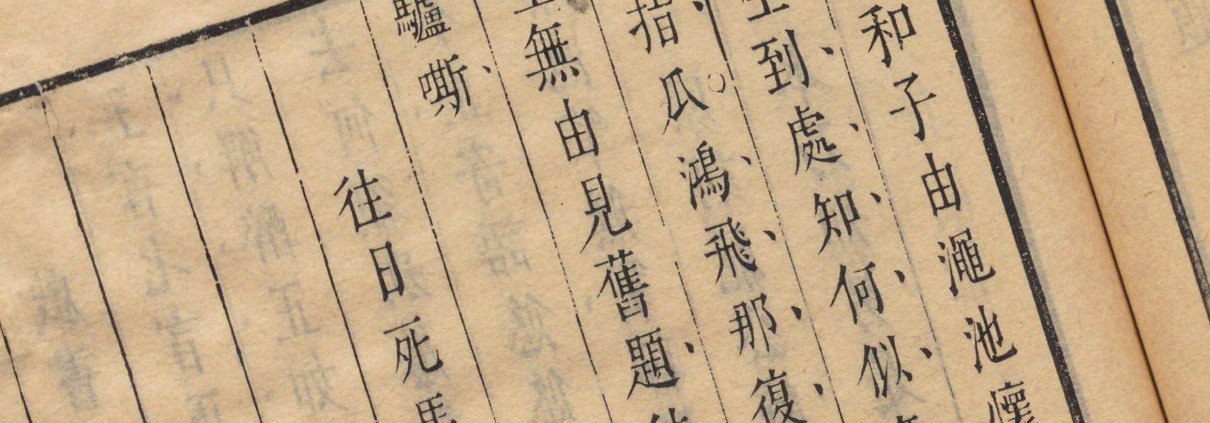 和子由澠池懷
生到處知何似
指瓜鴻飛那復
無由見舊題
驢嘶
往日死馬